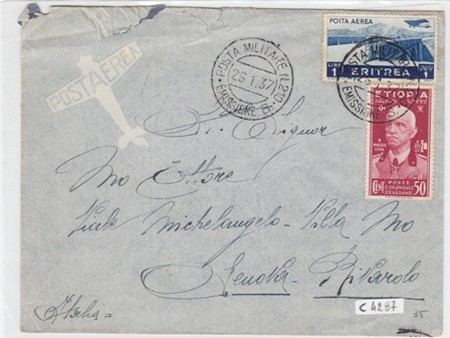 POSTA AEREA
POSTA MILITARE N. 210
26.1.37
EMISSIONE S.
POSTA AEREA
LIRE 1 ERITREA 1
ETIOPIA
9 MAGGIO 1936
POSTE COLONIALI ITALIANE
CEN. 50
Al Signor
Mo Ettore
Viale Michelangelo - Villa Mo
Genova - Rivarolo
Italia
C 4297
35